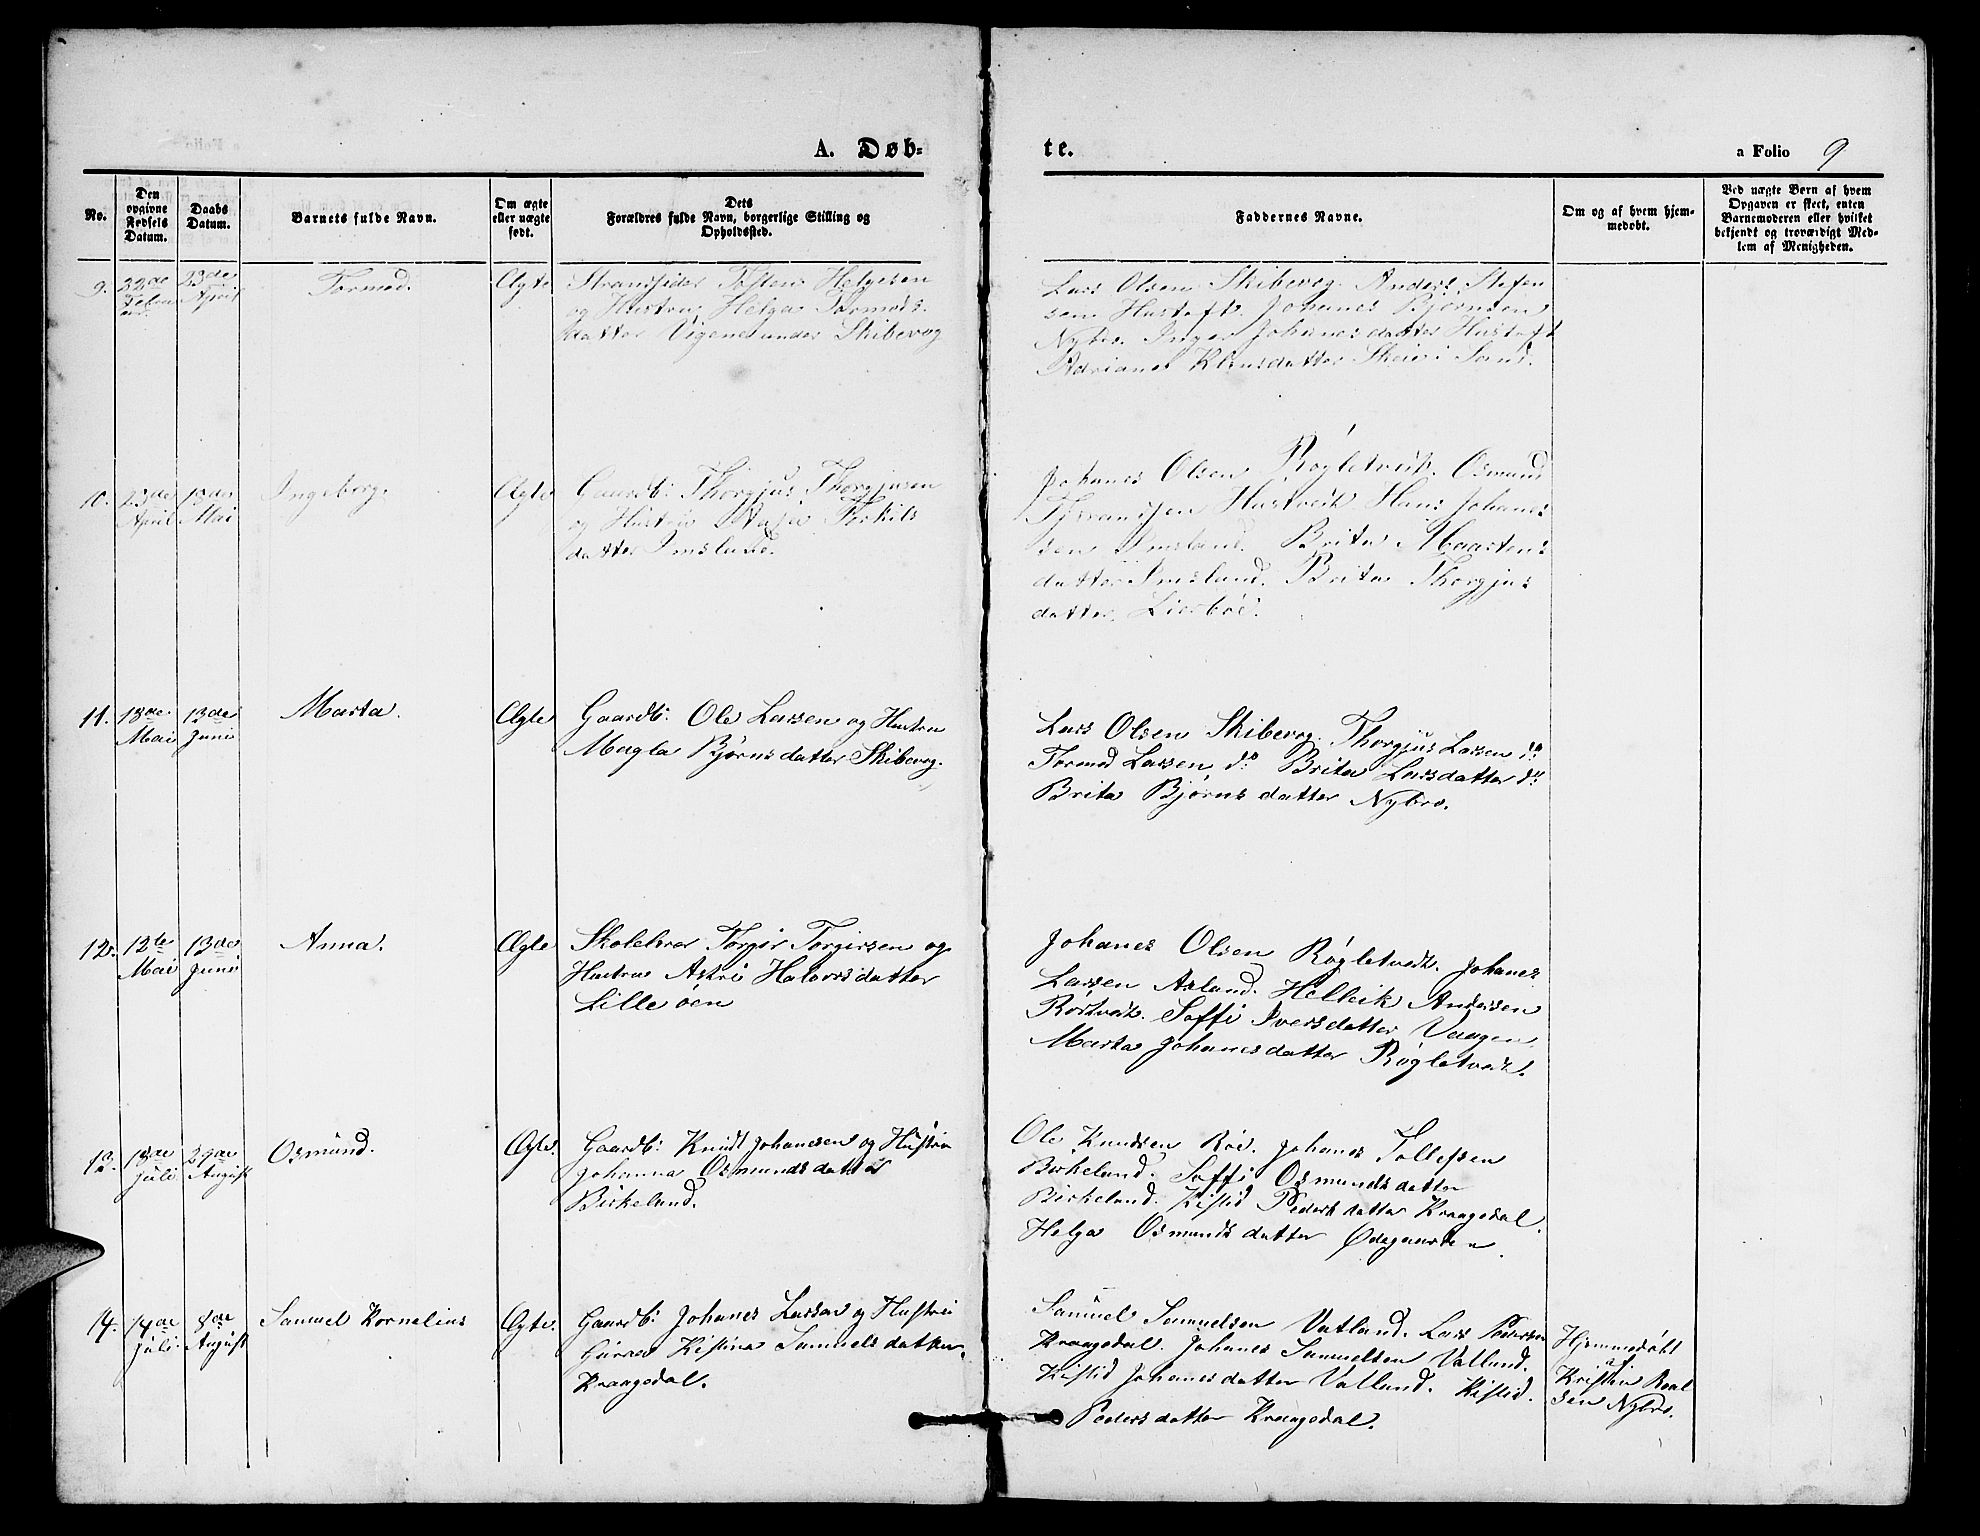 A. Døb-
te.
a Folio 9
No.
Den opgivne Fødsels Datum.
Daabs Datum.
Barnets fulde Navn.
Om ægte eller uægte født.
Dets Forældres fulde Navn, borgerlige Stilling og Opholdssted.
Faddernes Navne.
Om og af hvem hjemmedøbt.
Ved uægte Børn af hvem Opgaven er skeet, enten Barnemoderen eller hvilket bekjendt og troværdigt Medlem af Menigheden.
9.
22de
23de
April
Tormod.
Ægte
Strandsider Tosten Helgesen
og Hustru Helga Tormods
datter Vigene under Skibevog
Lars Olsen Skibevog. Anders Stefen
sen Hustoft. Johanes Bjørnsen
Nybro. Inger Johanesdatter Hustoft
Adriane Klausdatter Skeie i Sand.
10.
23de
April
13de
Mai
Ingeborg.
Ægte
Gaardb: Thorgjus Thorgjusen
og Hustru Terkils
datter Imsland.
Johanes Olsen Røgletvedt. Osmund
Hustvedt Hans Johanes
sen Imsland. Brita Maartens
datter Imsland. Brita Thorgjus
datter.
11.
18de
Mai
13de
Juni
Marta.
Ægte
Gaardb: Ole Larsen og Hustru
Magla Bjørnsdatter Skibevog.
Lars Olsen Skibevog. Thorgjus Larsen do
Tormod Larsen do Brita Larsdatter do
Brita Bjørnsdatter Nybro.
12.
12te
Mai
13de
Juni
Anna.
Ægte
Skolelærer Torger Torgersen og
Hustru Astri Halvorsdatter
Lille øen
Johanes Olsen Røgletvedt. Johanes
Larsen Asland. Helleik Andersen
Røstvedt. Saffi Iversdatter Vaagen.
Marta Johanesdatter Røgletvedt.
13.
18de
Juli
29de
August
Osmund.
Ægte.
Gaardb: Knudt Johanesen og Hustru
Johanna Osmundsdatter
Birkeland.
Ole Knudsen Røe. Johanes Tollefsen
Birkeland. Saffi Osmundsdatter
Birkeland. Kistid Pedersdatter Kraagedal.
Helga Osmundsdatter Ødegaarden.
14.
14de
Juli
8de
August
Samuel Kornelius
Ægte.
Gaardb: Johanes Larsen og Hustru
Guroa Kistina Samuelsdatter
Kraagedal.
Samuel Samuelsen Vatland. Lars Pedersen
Kraagedal. Johanes Samuelsen Vatland.
Kistid Johanesdatter Vatland. Kistid.
Pedersdatter Kraagedal.
Hjemmedøbt
af
Kristen Roal
sen Nybro.